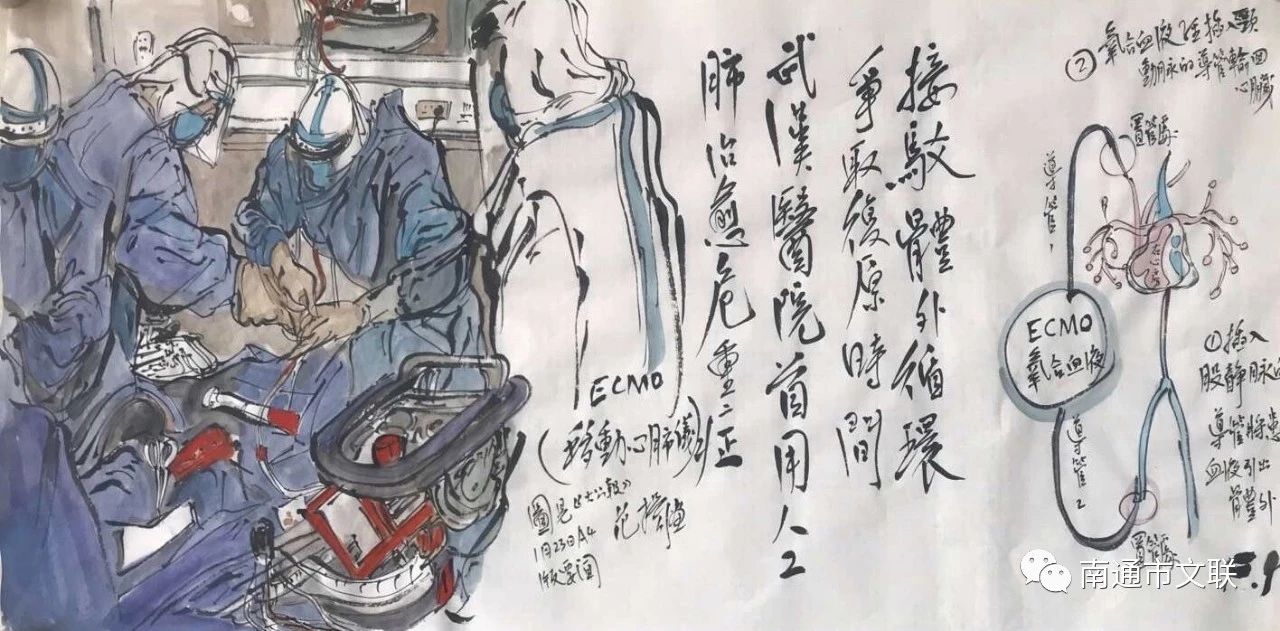 ② 氧合血液经插入頸
動脉的導管輸回
心臟
置管處
導管1
ECMO
氧合血液
① 插入
股静脉
導管將患
血液引出
體外
導管2
置管處
接駁體外循環
爭取復原時間
武漢醫院首用人工
肺治愈危重二正
ECMO
(移動心肺儀)
圖見《大公報》
1月23日A4
南通市文联